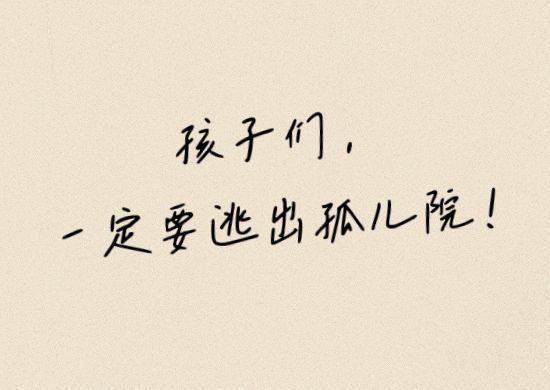 孩子们，
一定要逃出孤儿院！